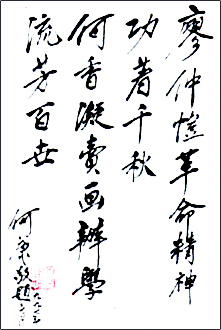 廖仲愷革命精神
功著千秋
何香凝賣画辦學
流芳百世
何康敬題